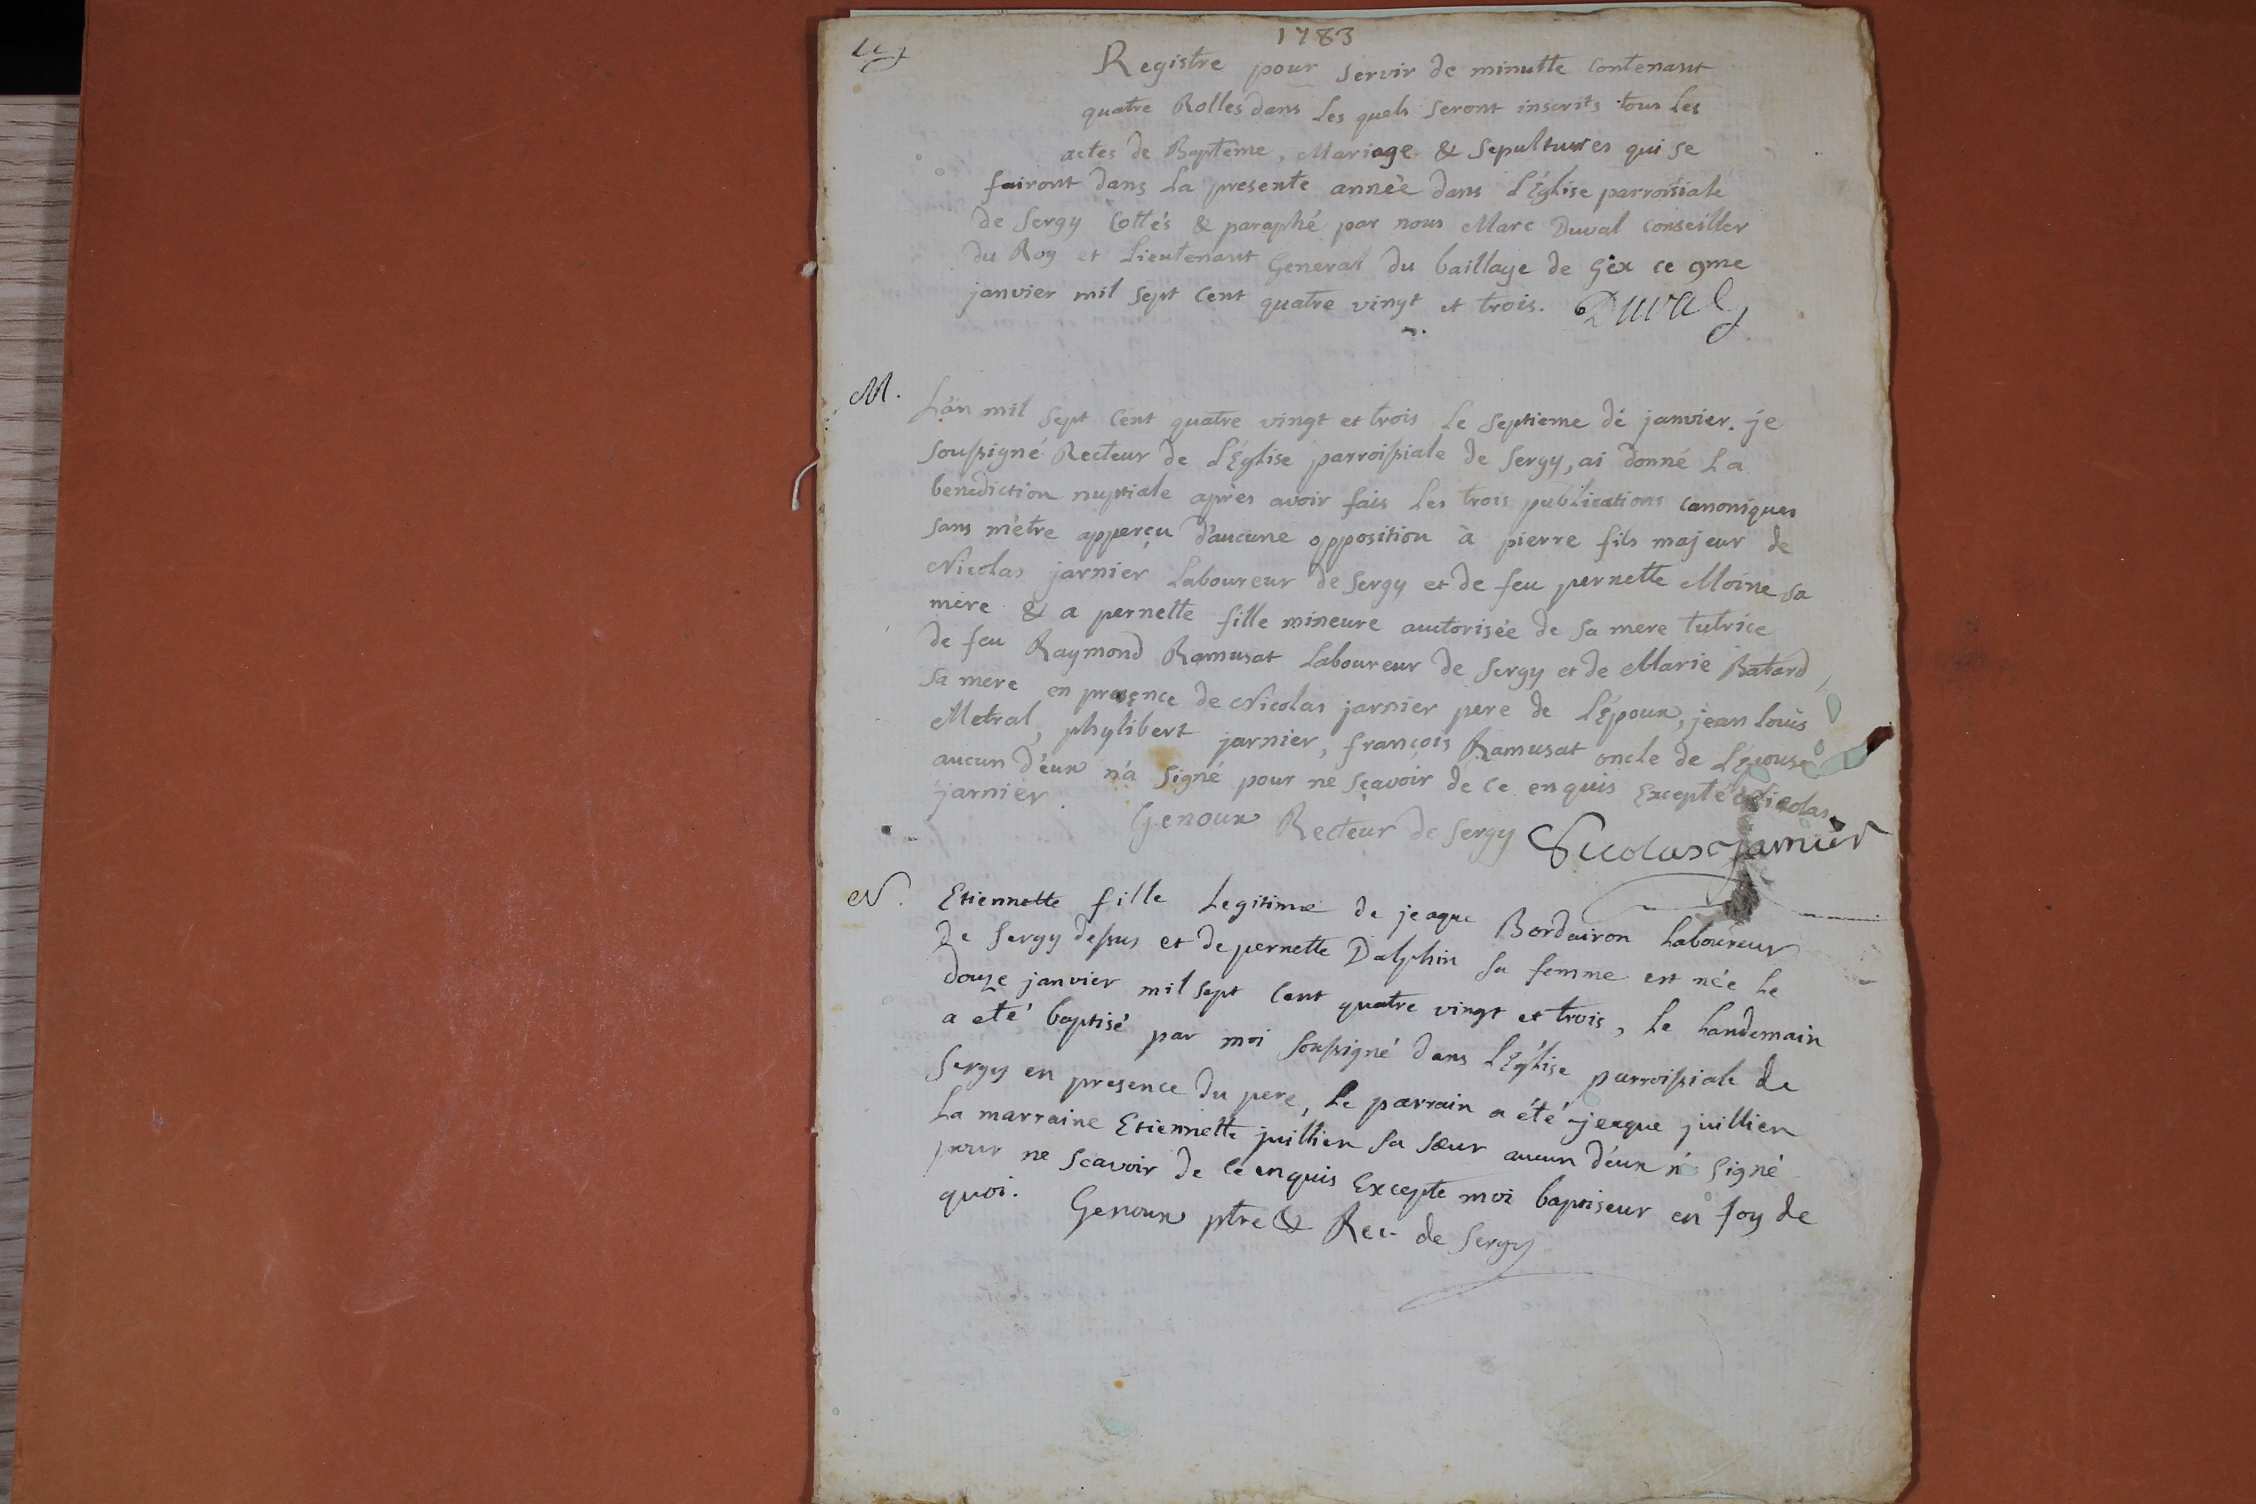 1783
Registre pour servir de minutte contenant
quatre Rolles dans les quels seront inscrits tous les
actes de Baptême, Mariage & Sepultures qui se
fairont dans la presente année dans L'Église parroissiale
de Sergy Cottés & paraphé par nous Marc Duval conseiller
du Roy et Lieutenant General du baillage de Gex ce 9me
janvier mil sept cent quatre vingt et trois. Duval
M. L'an mil sept cent quatre vingt et trois le septieme de janvier. je
soussigné Recteur de L'Église parroissiale de Sergy, ai donné La
benediction nuptiale après avoir fais les trois publications canoniques
sans m'être apperçu d'aucune opposition à pierre fils majeur de
Nicolas jarnier Laboureur de Sergy et de feu pernette Moine sa
mère & a pernette fille mineure auctorisée de sa mere tutrice
de feu Raymond Ramusat Laboureur de Sergy et de Marie Batard,
sa mere en presence de Nicolas jarnier pere de L'Époux, jean louis
Metral, phylibert jarnier, françois Ramusat oncle de L'Épouse
aucun d'eux n'a signé pour ne sçavoir de ce enquis Excepté Nicolas
jarnier. Genoux Recteur de Sergy Nicolas Jarnier
N. Etiennette fille Legitime de jeaque Bordairon Laboureur
de Sergy dessus et de pernette Dalphin sa femme est née le
douze janvier mil sept cent quatre vingt et trois, le landemain
a eté baptisé par moi soussigné dans L'Église parroissiale de
Sergy en presence du pere, le parrain a été jeaque juillien
La marraine Etiennette juillien sa sœur aucun d'eux n'a signé
pour ne scavoir de ce enquis Excepte moi baptiseur en foy de
quoi. Genoux ptre & Rec. de Sergy